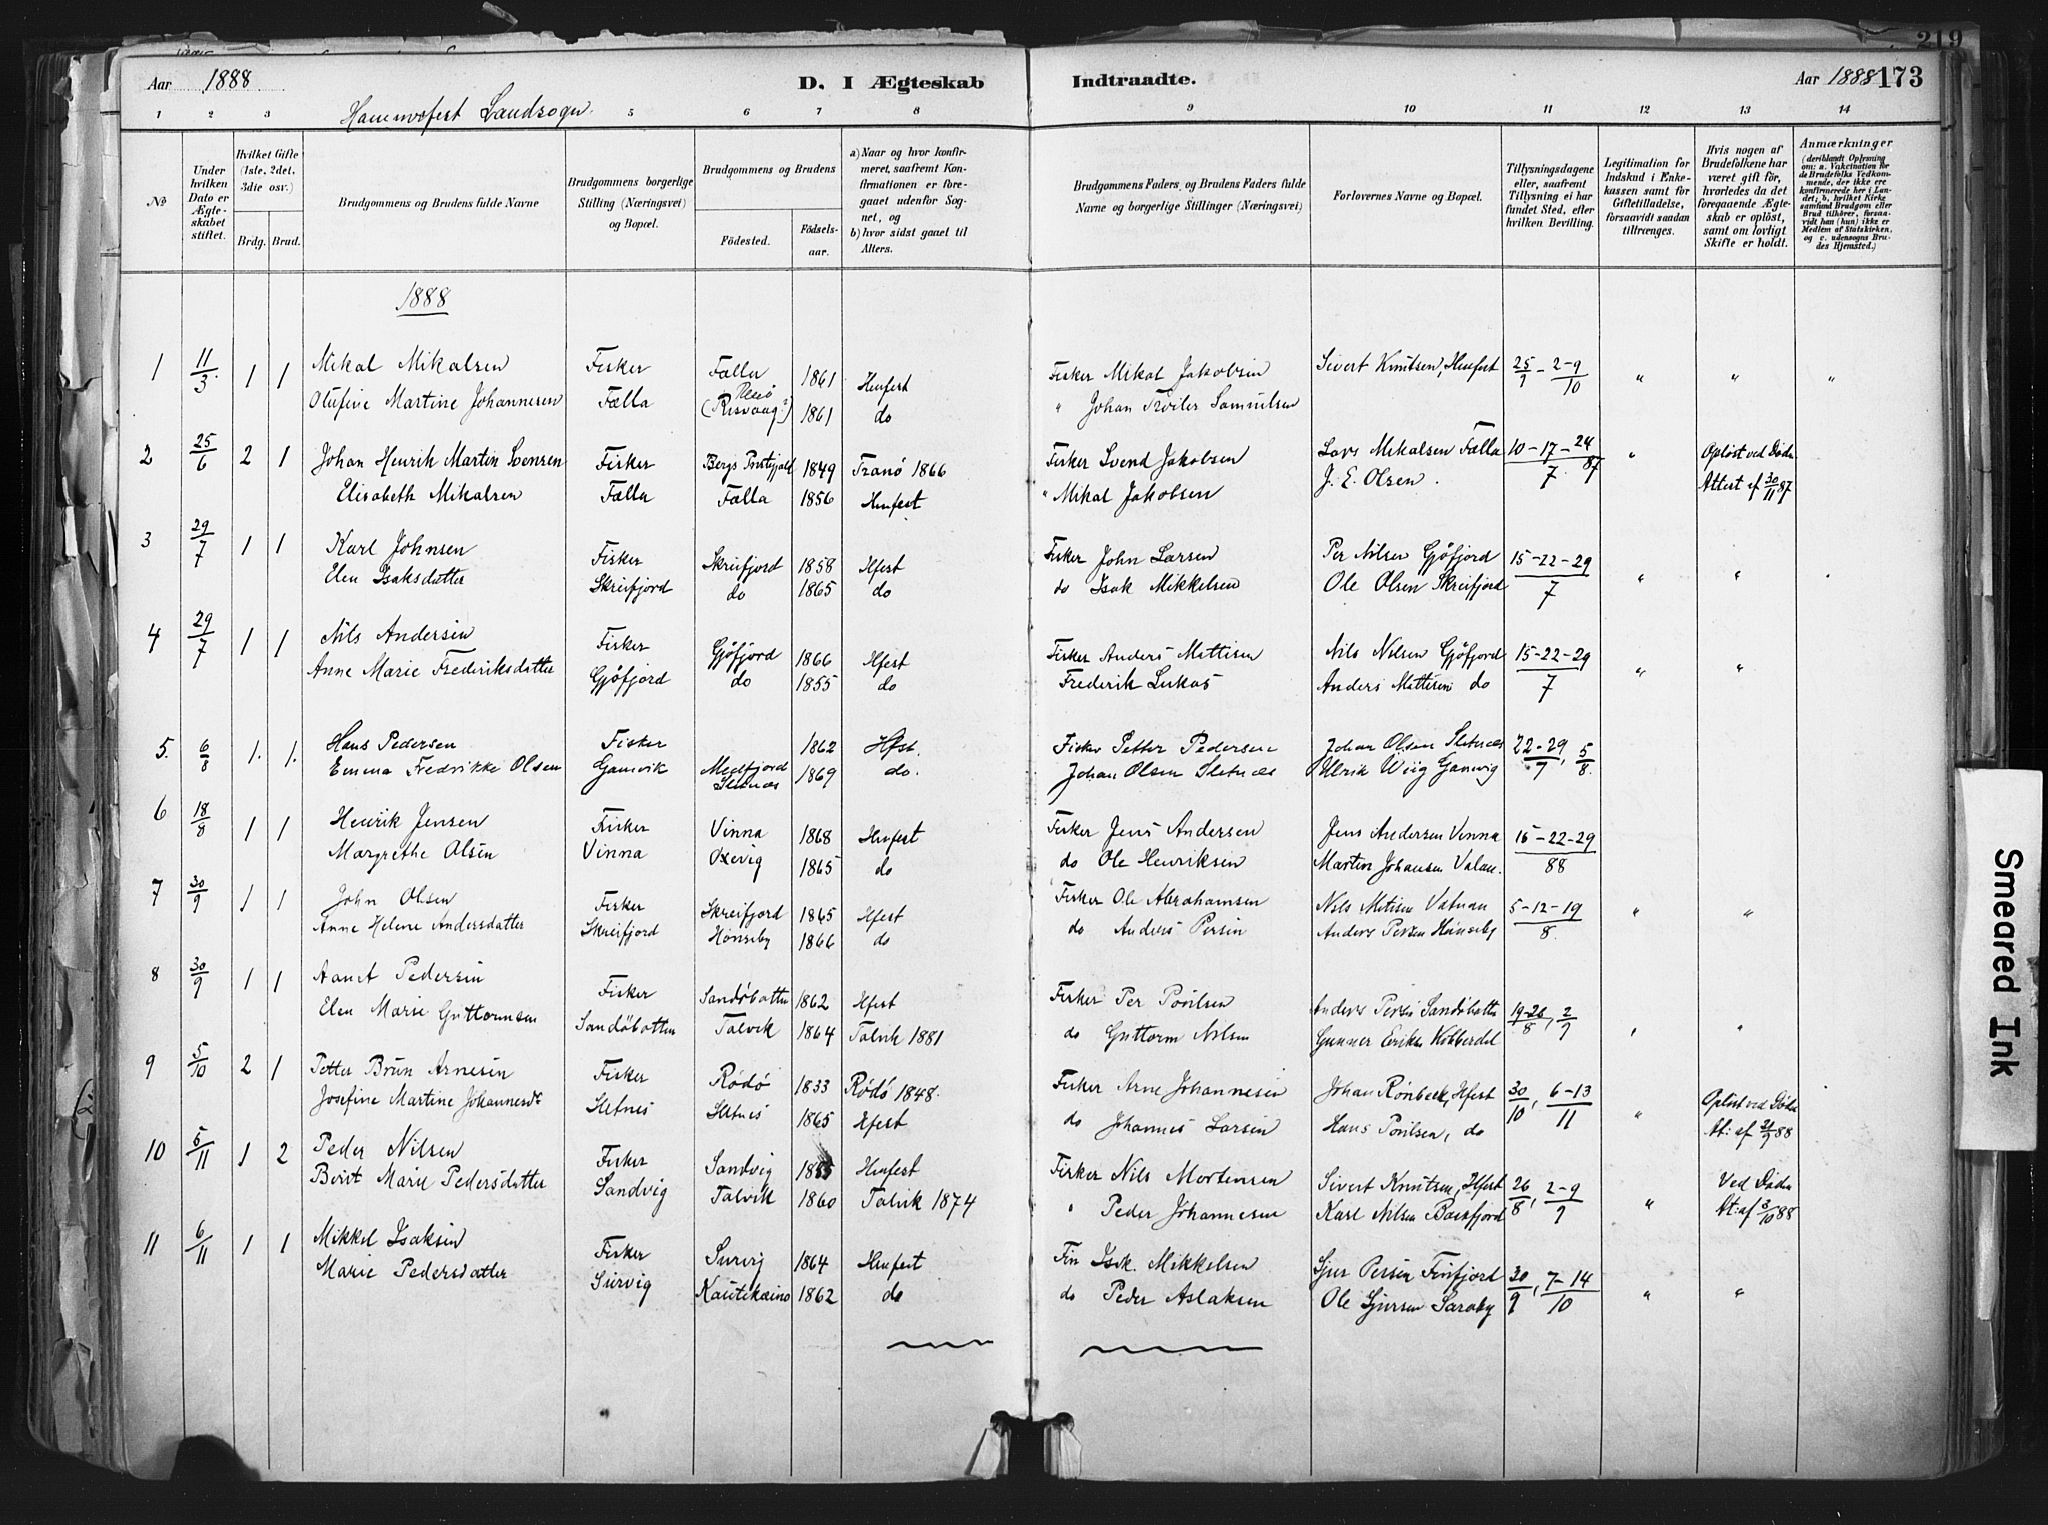 219
Aar 1888. D. I Ægteskab Indtraadte. Aar 1888 173
Hammerfest Landsogn.
1 2 3 5 6 7 8 9 10 11 12 13 14
No
Under hvilken Dato er Ægteskabet stiftet.
Hvilket Gifte (1ste, 2det, 3die osv.)
Brdg. Brud.
Brudgommens og Brudens fulde Navne
Brudgommens borgerlige Stilling (Næringsvei) og Bopæl.
Brudgommens og Brudens
Fødested. Fødselsaar.
a) Naar og hvor konfirmeret, saafremt Konfirmationen er foregaaet udenfor Sognet, og
b) hvor sidst gaaet til Alters.
Brudgommens Faders, og Brudens Faders fulde Navne og borgerlige Stillinger (Næringsvei)
Forlovernes Navne og Bopæl.
Tillysningsdagene eller, saafremt Tillysning ei har fundet Sted, efter hvilken Bevilling.
Legitimation for Indskud i Enkekassen samt for Giftetilladelse, forsaavidt saadan tiltrænges.
Hvis nogen af Brudefolkene har været gift før, hvorledes da det foregaaende Ægteskab er opløst, samt om lovligt Skifte er holdt.
Anmærkninger
(deriblandt Oplysning om: a. Vakcination for de Brudefolks Vedkommende, der ikke ere konfirmerede her i Landet; b, hvilket Kirkesamfund Brudgom eller Brud tilhører, forsaavidt han (hun) ikke er Medlem af Statskirken, og c. udensogns Brudes Hjemsted.)
1888
1 11/3 1 1 Mikal Mikalsen Fisker Fælla 1861 Hmfest Fisker Mikal Jakobsen Sivert Knutsen, Hmfest 25/9 - 2-9/10 " " "
Olufine Martine Johannesen Fælla (Risvaag?) 1861 do " Johan Samuelsen
2 25/6 2 1 Johan Henrik Martin Svensen Fisker Bergs Prstgjæld 1849 Tranö 1866 Fisker Svend Jakobsen Lars Mikalsen Fælla 10-17-24/7 87 " Opløst ved Døden
Elisabeth Mikalsen Fælla Fælla 1856 Hmfest " Mikal Jakobsen J. E. Olsen. Attest af 30/11 87
3 29/7 1 1 Karl Johnsen Fisker Skreifjord 1858 Hfest Fisker John Larsen Per Nilsen Gjøfjord 15-22-29/7 " "
Elen Isaksdatter Skreifjord do 1865 do do Isak Mikkelsen Ole Olsen Skreifjord
4 29/7 1 1 Nils Andersen Fisker Gjøfjord 1866 Hfest Fisker Anders Mattisen Nils Nilsen Gjøfjord 15-22-29/7 " "
Anne Marie Frederiksdatter Gjøfjord do 1855 do Frederik Lukas Anders Mattisen do
5. 6/8 1. 1. Hans Pedersen Fisker 1862 Hfst. Fisker Petter Pedersen Johan Olsen Sletnæs 22-29/7, 5/8.
Emma Fredrikke Olsen Gamvik Mefjord Sletnæs 1869 do. Johan Olsen Sletnæs Ulrik Wiig Gamvig
6 18/8 1 1 Henrik Jensen Fisker Vinna 1868 Hmfest Fisker Jens Andersen Jens Andersen Vinna 15-22-29/88
Margrethe Olsen Vinna Oxevig 1865 do do Ole Henriksen Martin Johansen Valan.
7 30/9 1 1 John Olsen Fisker Skreifjord 1865 Hfest Fisker Ole Abrahamsen Nils Mitisen Vatnan 5-12-19/8. " "
Anne Helene Andersdatter Skreifjord Hønseby 1866 do do Anders Persen Anders Persen Hønseby
8 30/9 1 1 Pedersen Fisker Sandøbotten 1862 Hfest Fisker Per Povlsen Anders Persen Sandøbotten 19-26/8, 2/9 " "
Elen Marie Guttormsen Sandøbotten Talvik 1864 Talvik 1881 do Guttorm Nilsen Gunner Eriksen Kobberdal
9 5/10 2 1 Petter Brun Arnesen Fisker Rødø 1833 Rødø 1848. Fisker Arne Johannesen Johan Rønbeck, Hfest 30/10, 6-13/11 " Opløst ved Døden
Josefine Martine Johannesd. Sletnes Sletnes 1865 Hfest do Johannes Larsen Hans Povlsen, do At: af 21/9 88
10 5/11 1 2 Peder Nilsen Fisker Sandvig 1855 Hmfest Fisker Nils Mortensen Sivert Knutsen, Hfest 26/8, 2-9/9 " Ved Døden
Berit Marie Pedersdatter Sandvig Talvik 1860 Talvik 1874 " Peder Johannesen Karl Nilsen Bæifjord At: af 3/10 88
11 6/11 1 1 Mikkel Isaksen Fisker Survig 1864 Hmfest Fin Isk. Mikkelsen Sjur Persen Finfjord 30/9, 7-14/10 " "
Marie Pedersdatter Survig Kautekæino 1862 do do Peder Aslaksen Ole Sjursen Saraby
Smeared Ink